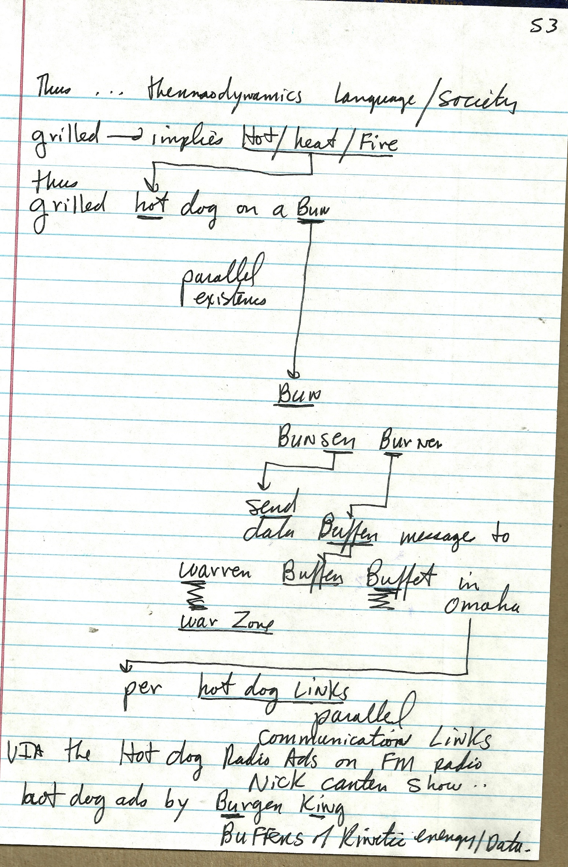 53
Thus ... thermaodynamics Language/Society
grilled → implies Hot/heat/Fire
thus
grilled hot dog on a Bun
parallel
existence
Bun
Bunsen Burner
send
data Buffer message to
Warren Buffer Buffet in
Omaha
War Zone
per hot dog Links
parallel
communication Links
VIA the Hot dog Radio Ads on FM radio
Nick canten show..
hot dog ads by Burger King
Buffers of Kinetic energy/Data.